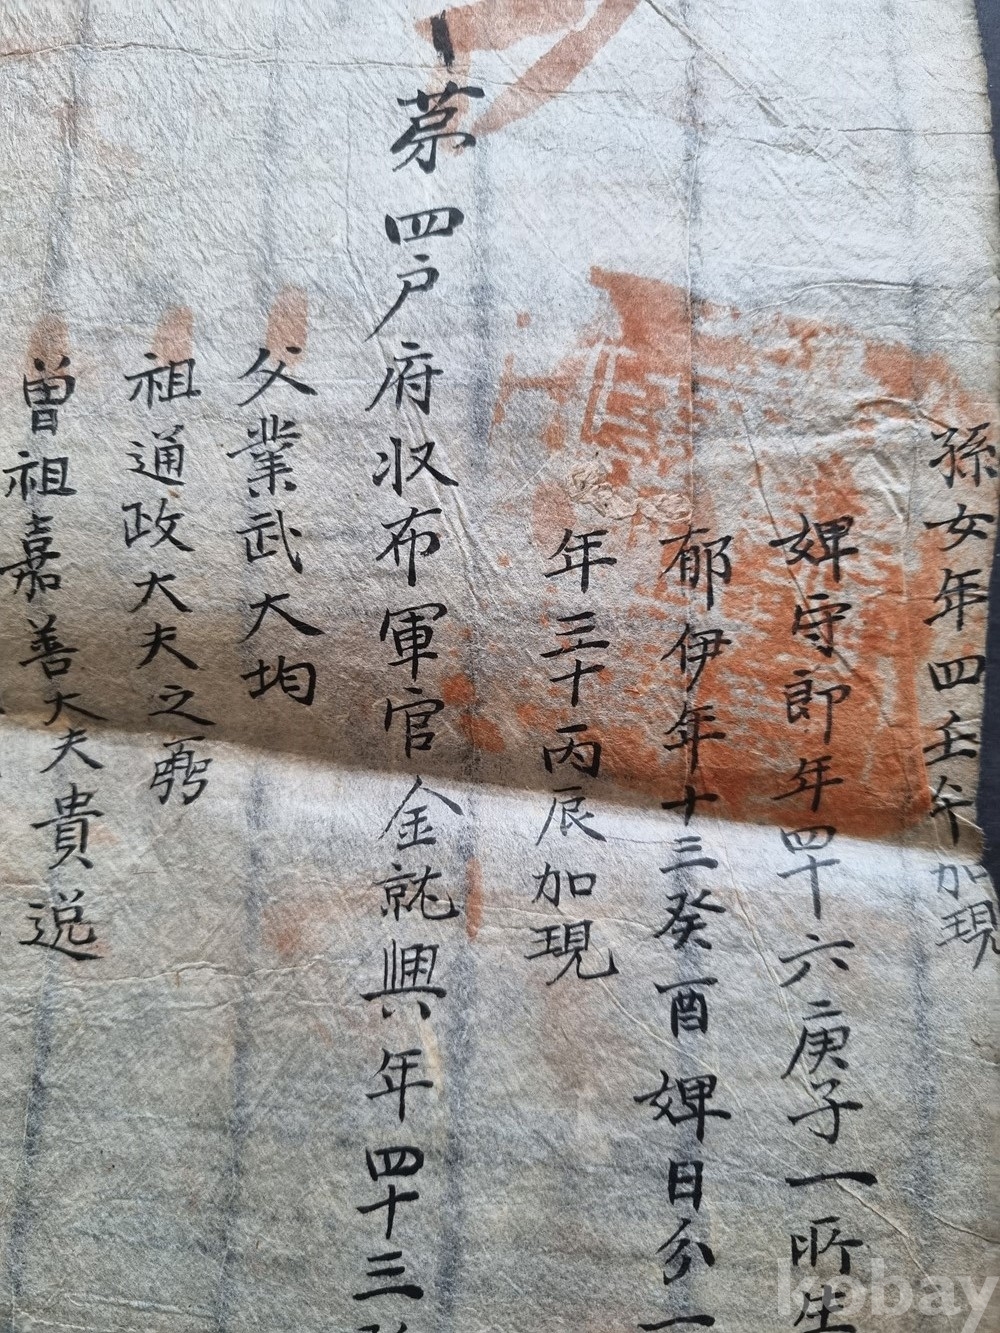 孫女年四壬午加現
婢守郎年四十六庚子一所生
郁伊年十三癸酉婢日分一
年三十丙辰加現
第四戶府收布軍官金就興年四十三
父業武大均
祖通政大夫之弼
曽祖嘉善大夫貴説
kobay